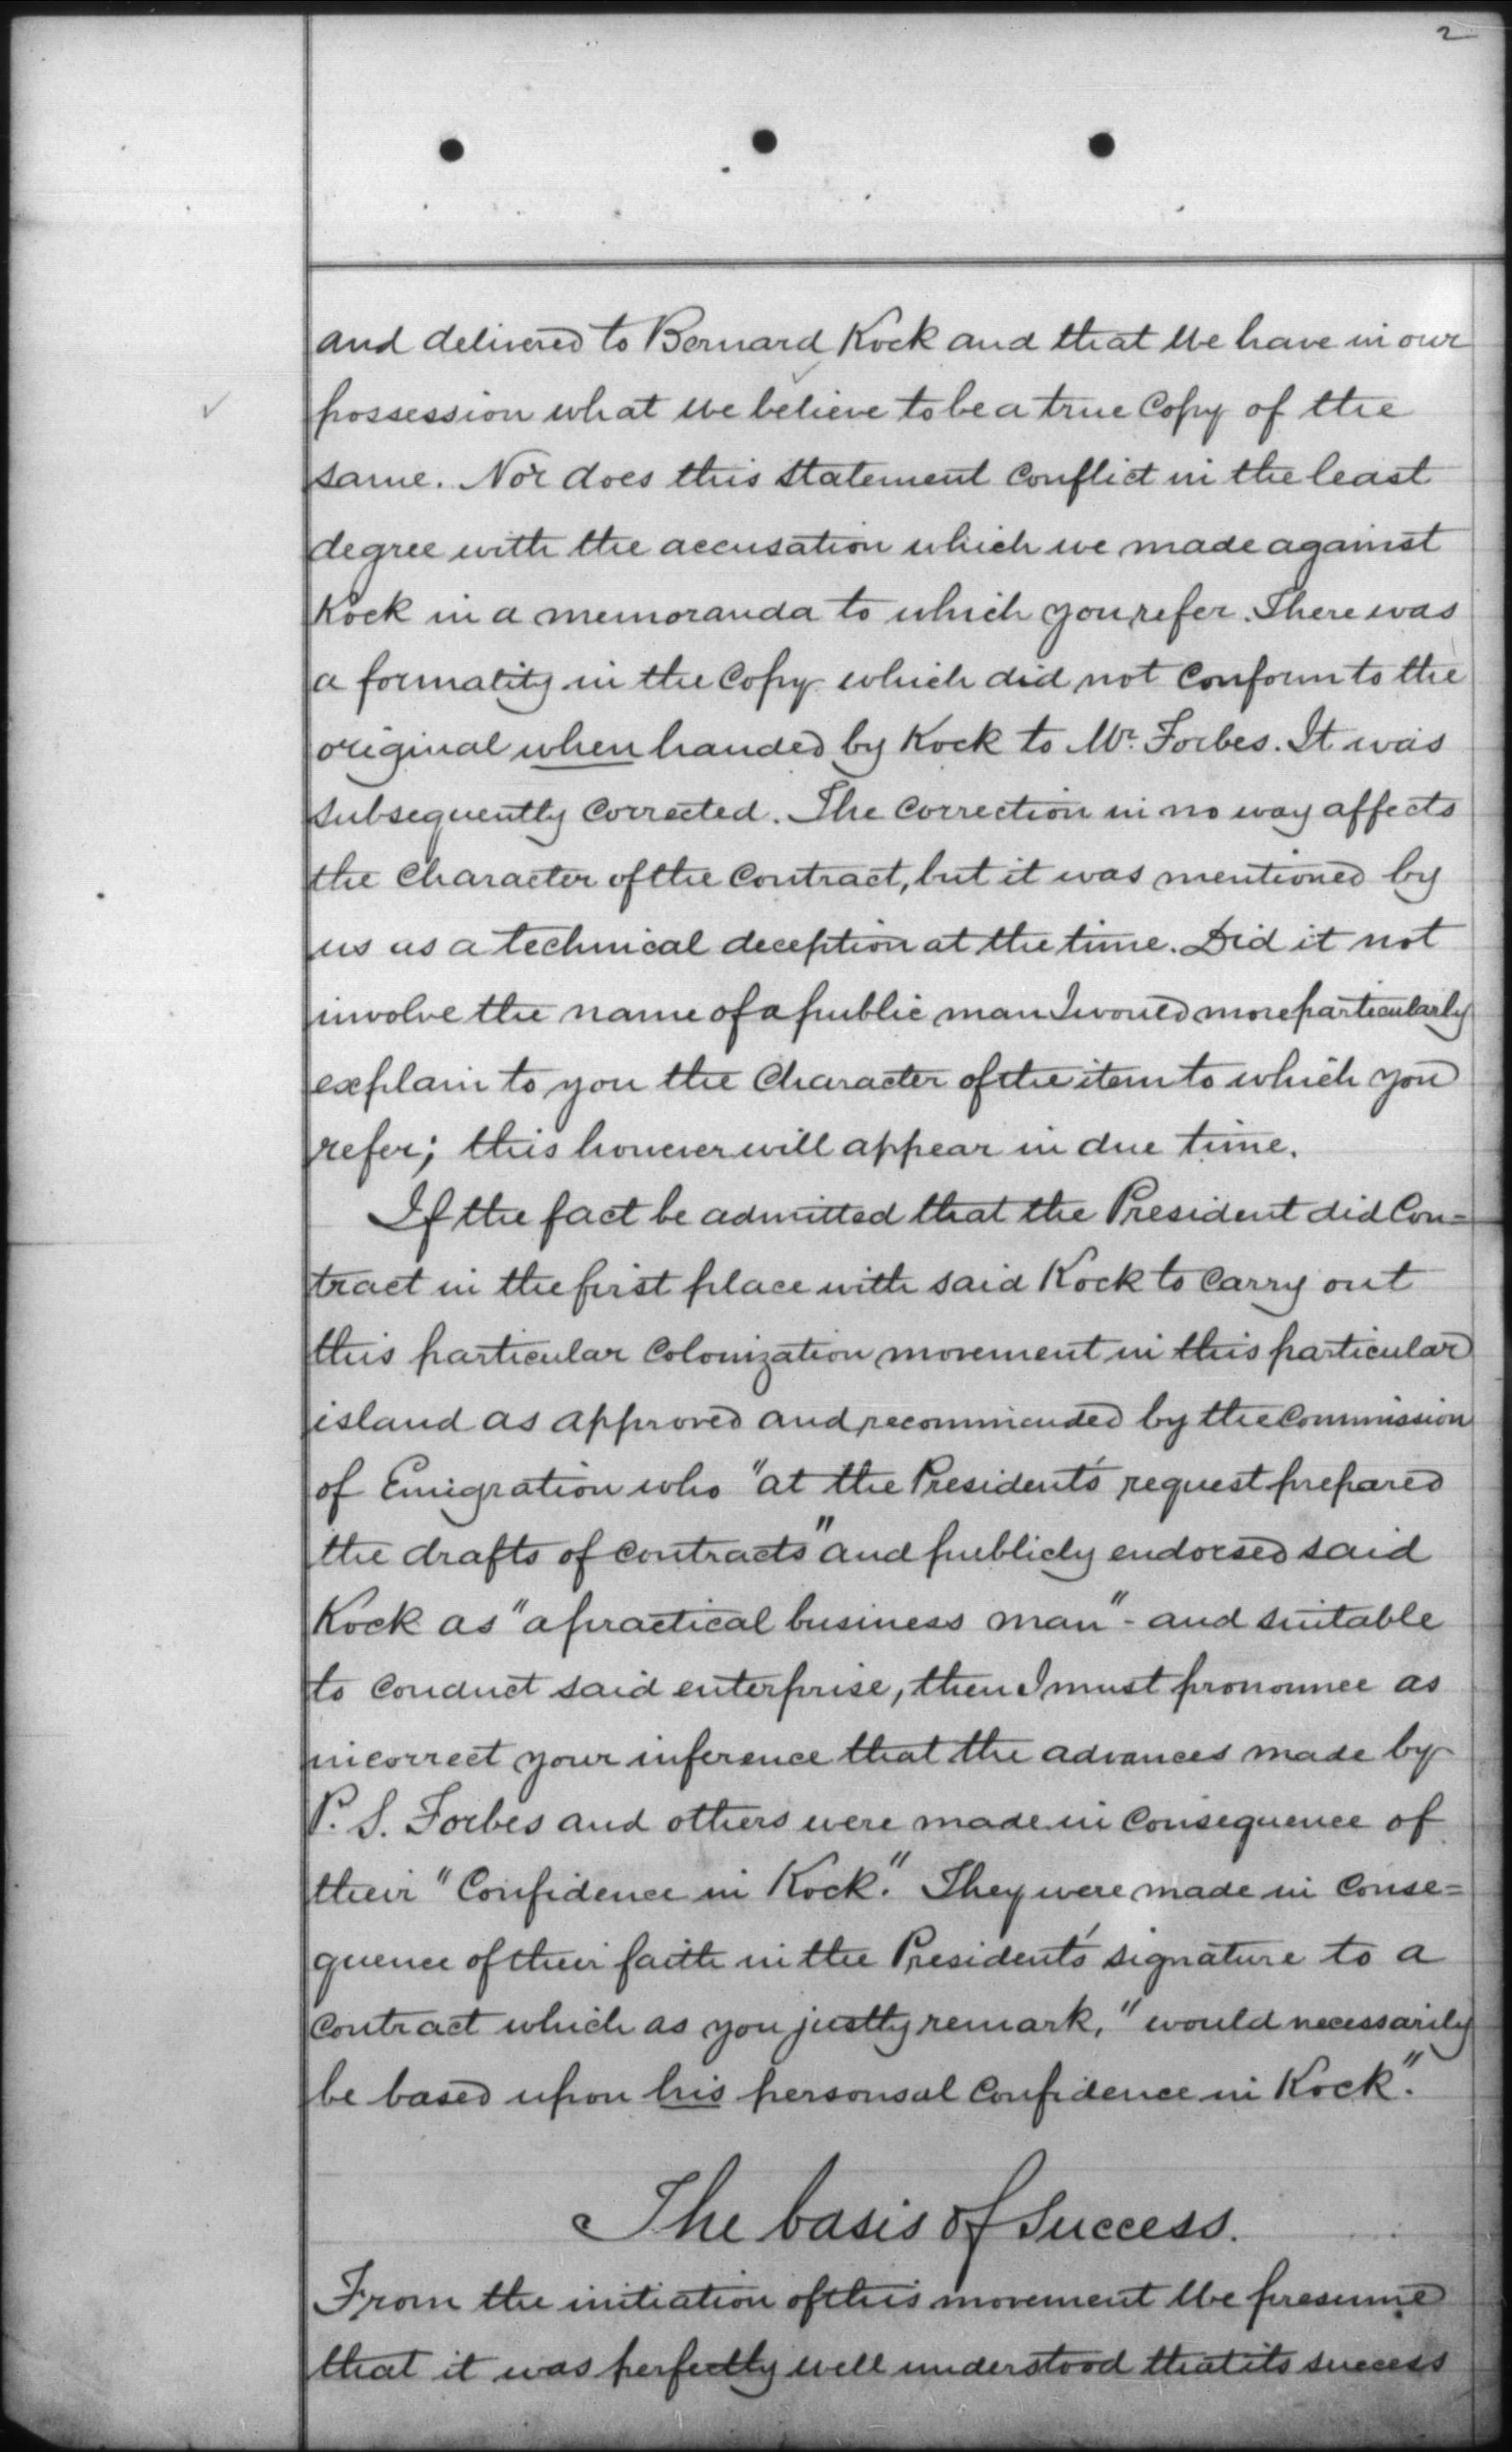 2
and delivered to Bernard Kock and that we have in our
possession what we believe to be a true Copy of the
same. Nor does this statement Conflict in the least
degree with the accusation which we made against
Kock in a memoranda to which you refer. There was
a formality in the Copy which did not Conform to the
original when handed by Kock to Mr. Forbes. It was
subsequently Corrected. The Correction in no way affects
the Character of the Contract, but it was mentioned by
us as a technical deception at the time. Did it not
involve the name of a public man I would more particularly
explain to you the Character of the item to which you
refer; this however will appear in due time.
If the fact be admitted that the President did Con=
tract in the first place with said Kock to Carry out
this particular Colonization movement in this particular
island as approved and recommended by the Commission
of Emigration who "at the President's request prepared
the drafts of Contracts" and publicly endorsed said
Kock as "a practical business man" - and suitable
to Conduct said enterprise, then I must pronounce as
incorrect your inference that the advances made by
P. S. Forbes and others were made in Consequence of
their "Confidence in Kock." They were made in Conse=
quence of their faith in the President's signature to a
Contract which as you justly remark, "would necessarily
be based upon his personsal Confidence in Kock".
The basis of Success.
From the initiation of this movement we presume
that it was perfectly well understood that its success